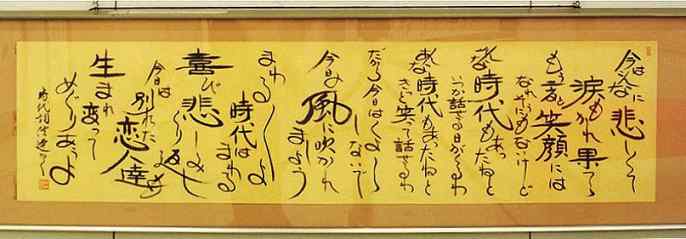 今はこんなに悲しくて
涙もかれ果てて
もう二度と笑顔には
なれそうにもないけど
そんな時代もあったねと
いつか話せる日がくるわ
あんな時代もあったねと
きっと笑って話せるわ
だから今日はくよ〱しないで
今日の風に吹かれましょう
まわる〱よ
時代はまわる
喜び悲しみくり返し
今日は別れた恋人達も
生まれ変って
めぐりあうよ
時代詞